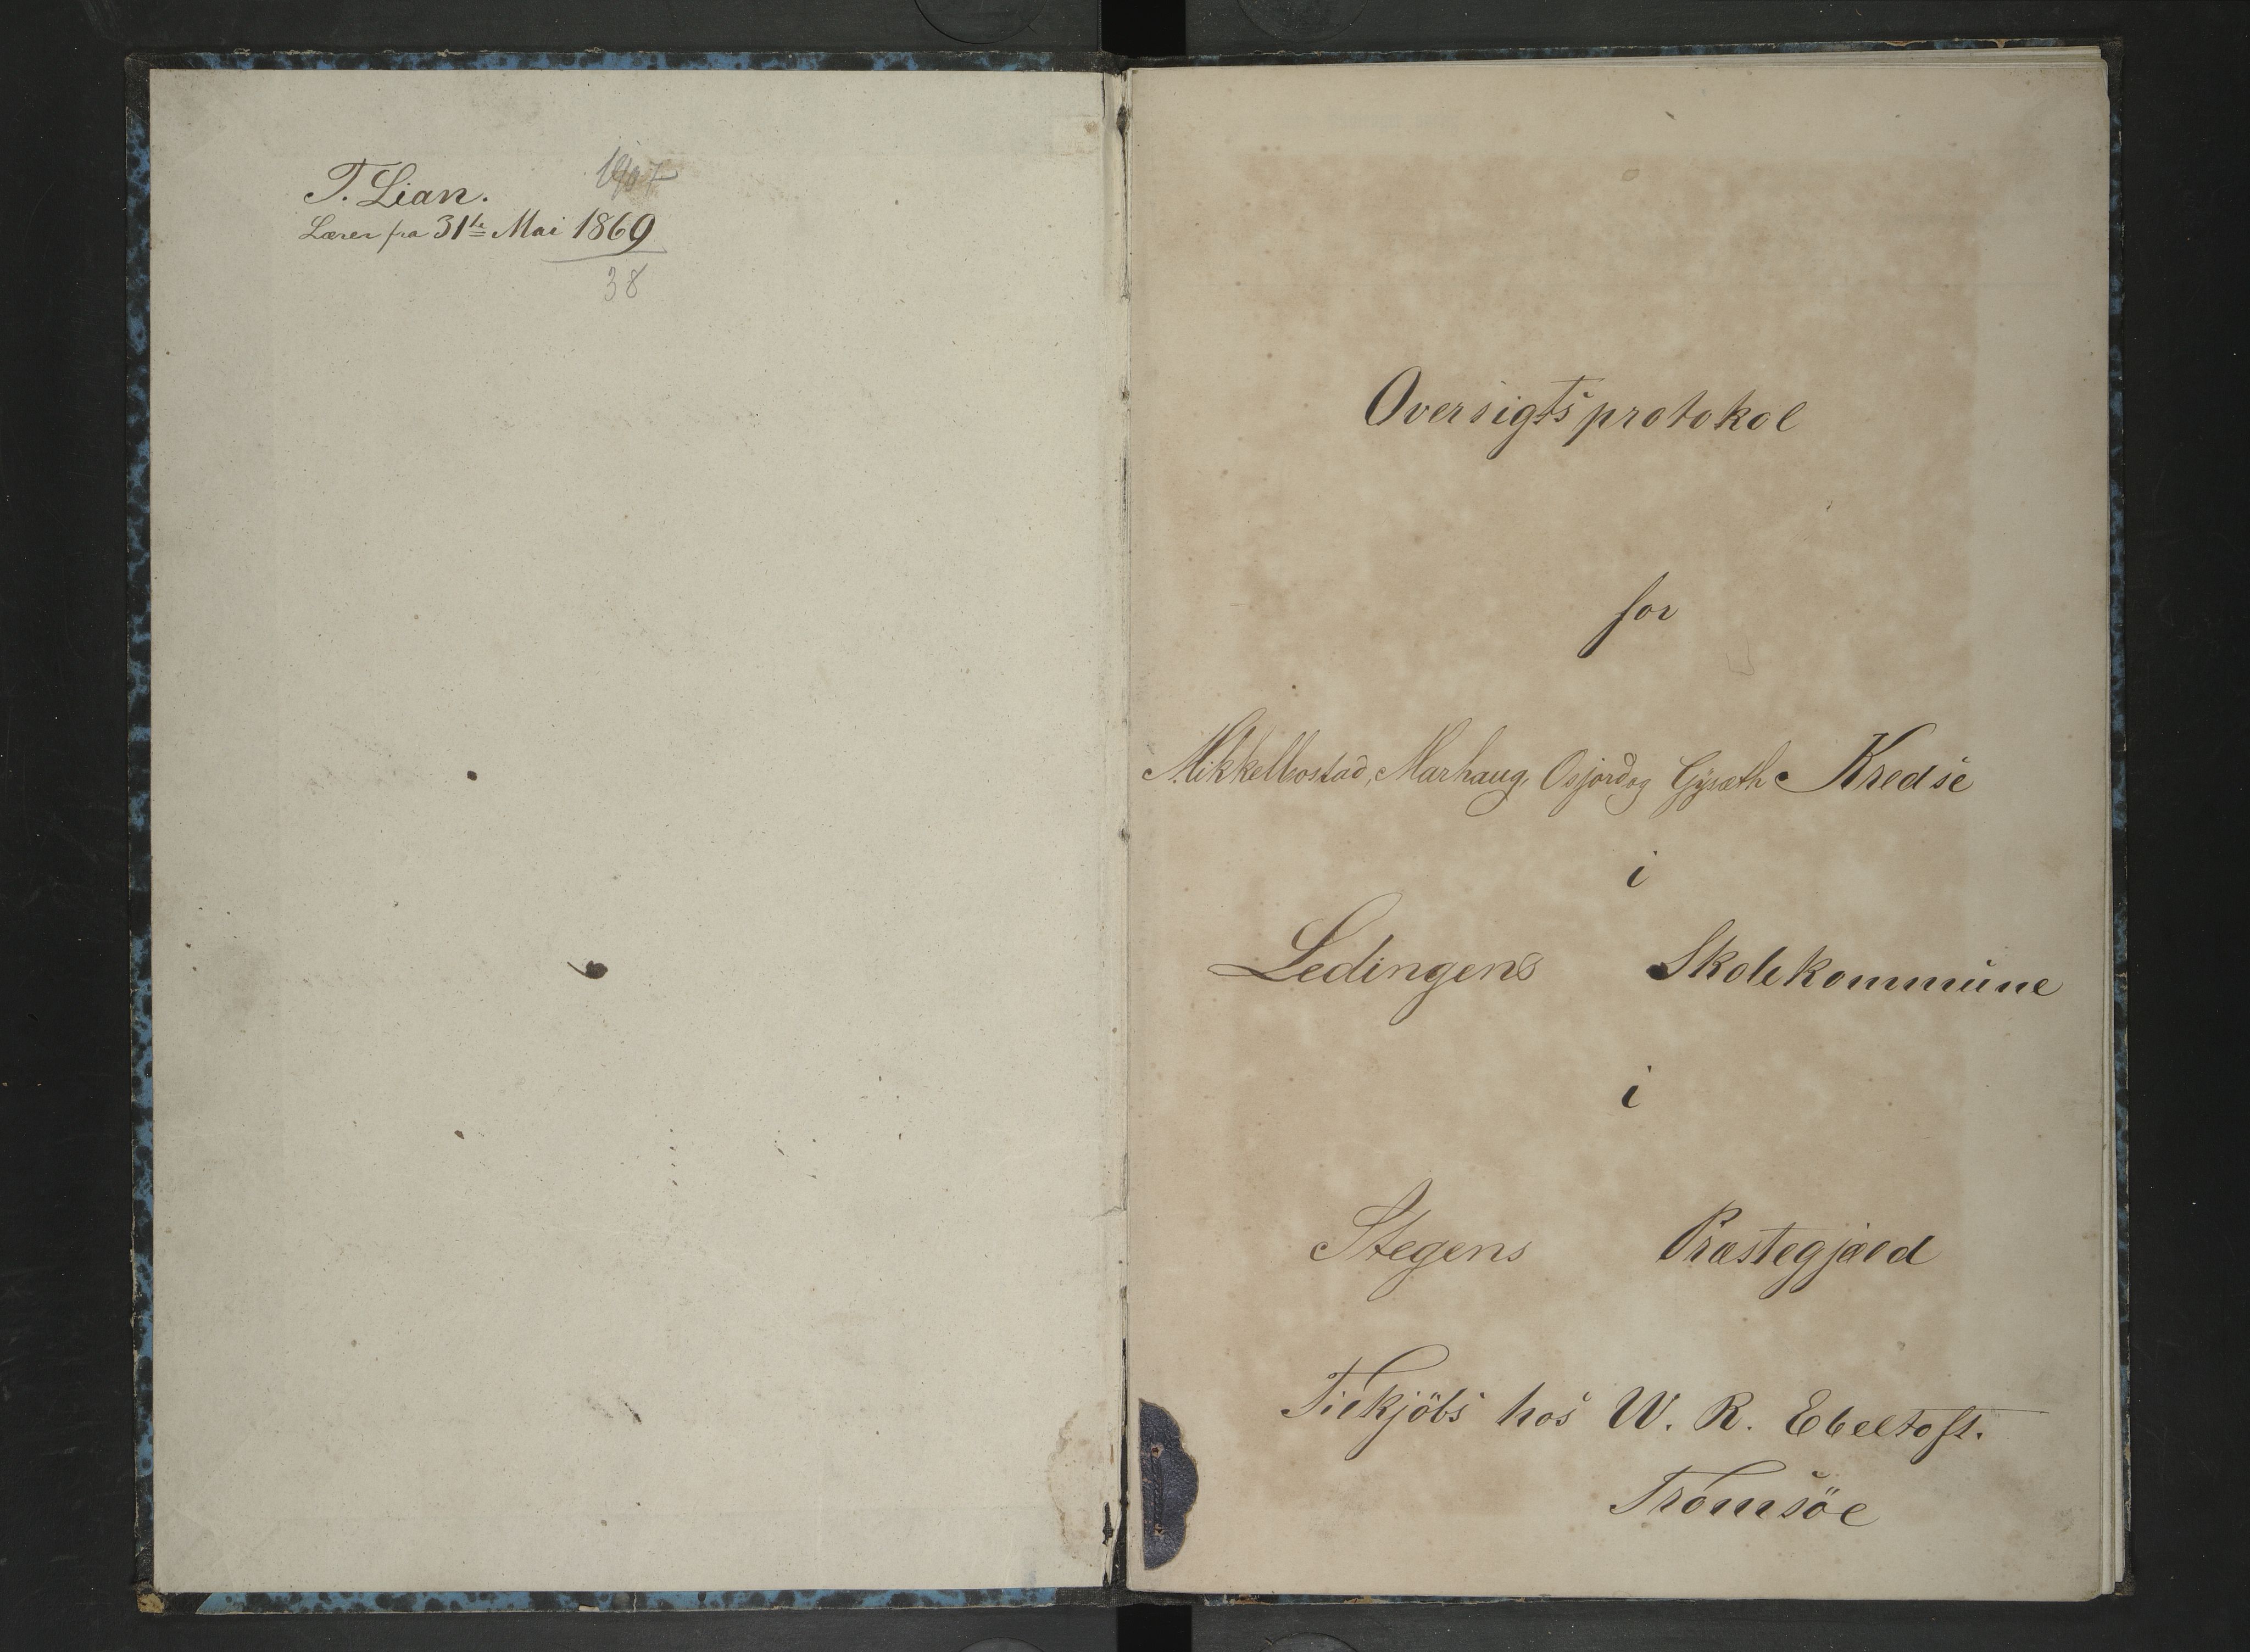 T. Lian.
1907
Lærer fra 31te Mai 1869
38
Oversigtsprotokol
for
Mikkelbostad, Marhaug, Osjord og Gysæth Kredse
i
Lødingens Skolekommune
i
Stegens Præstegjæld
Tilkjöbs hos W. R. Ebeltoft.
Tromsöe